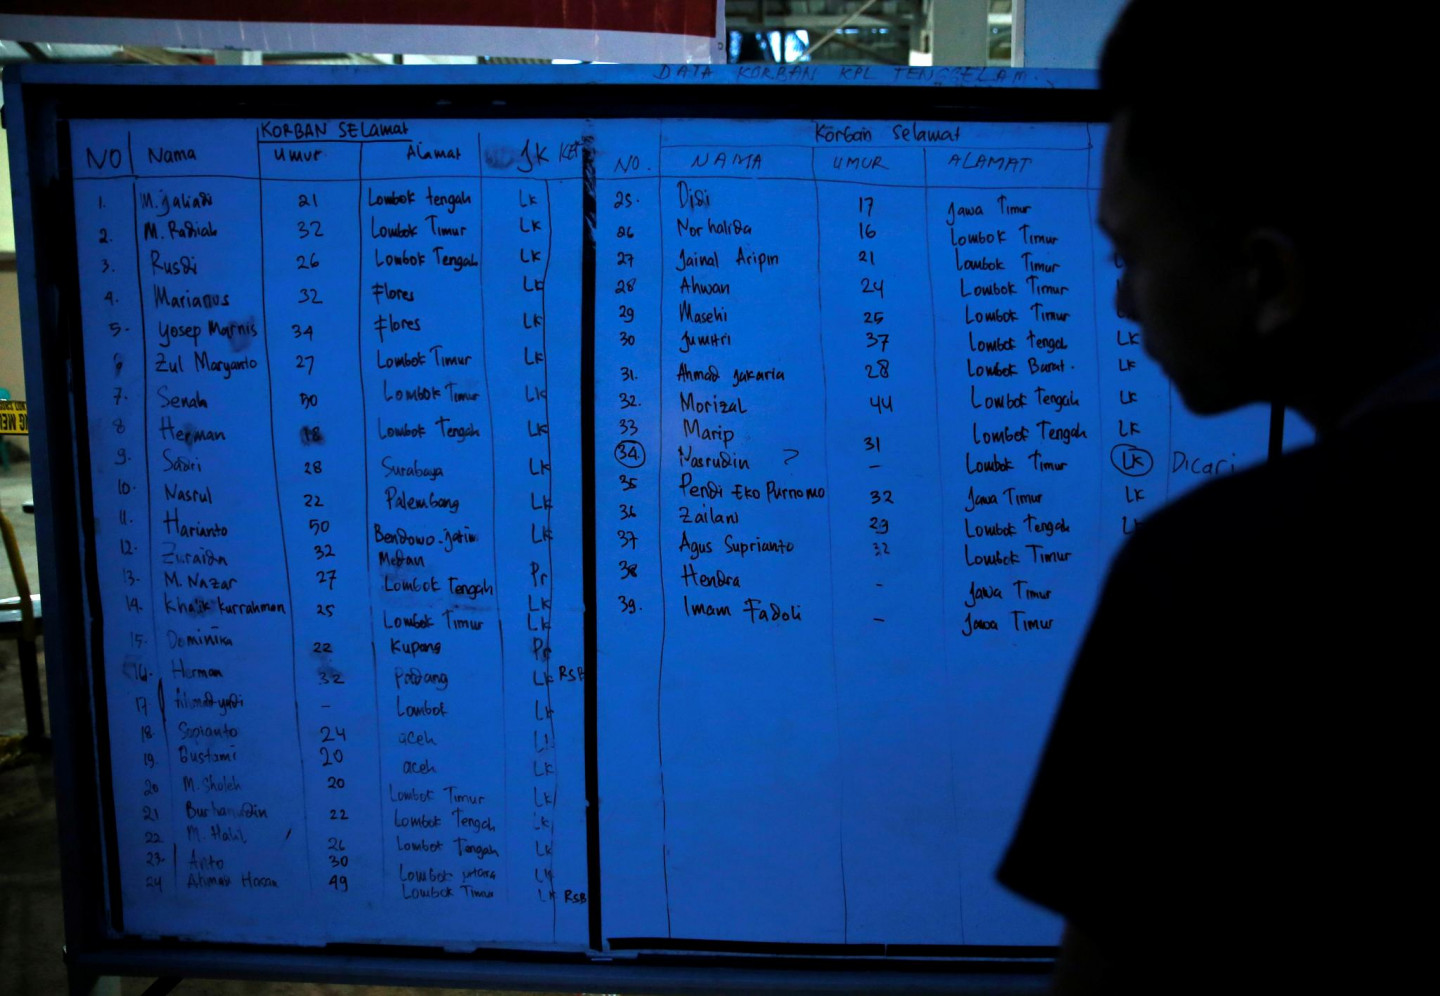 DATA KORBAN KPL TENGGELAM.
KORBAN SELAMAT
NO Nama Umur Alamat JK KET
1. M. Jaliadi 21 Lombok tengah Lk
2. M. Radiah 32 Lombok Timur Lk
3. Rusdi 26 Lombok Tengah Lk
4. Marianus 32 Flores Lk
5. Yosep Marnis 34 Flores Lk
Zul Maryanto 27 Lombok Timur Lk
7. Senah 50 Lombok Timur Lk
8 Herman 18 Lombok Tengah Lk
9. Sadri 28 Surabaya Lk
10. Nasrul 22 Palembang Lk
11. Harianto 50 Bendowo-jatim Lk
12. Zuraida 32 Medan Pr
13. M. Nazar 27 Lombok Tengah Lk
14. Khaik kurrahman 25 Lombok Timur Lk
15. Dominika 22 Kupang Pr
16. Herman 32 Padang Lk RSB
17 Ahmad yadi - Lombok Lk
18. Supianto 24 aceh
19. Bustami 20 aceh Lk
20 M. Sholeh 20 Lombok Timur Lk
21 Burhanudin 22 Lombok Tengah Lk
22 M. Halil 26 Lombok Tengah Lk
23. Anto 30 Lombok utara Lk
24 Ahmad Hasan 49 Lombok Timur Lk RSB
Korban Selamat
NO. NAMA UMUR ALAMAT
25. Didi 17 Jawa Timur
26 Nor halida 16 Lombok Timur
27 Jainal Aripin 21 Lombok Timur
28 Ahwan 24 Lombok Timur
29 Masehi 25 Lombok Timur
30 Jumitri 37 Lombok tengah Lk
31. Ahmad Jakaria 28 Lombok Barat. Lk
32. Morizal 44 Lombok Tengah Lk
33 Marip 31 Lombok Tengah Lk
34. Nasrudin ? - Lombok Timur Lk Dicari
35 Pendi Eko Purnomo 32 Jawa Timur Lk
36 Zailani 29 Lombok Tengah Lk
37 Agus Suprianto 32 Lombok Timur
38 Hendra - Jawa Timur
39. Imam Fadoli - Jawa Timur